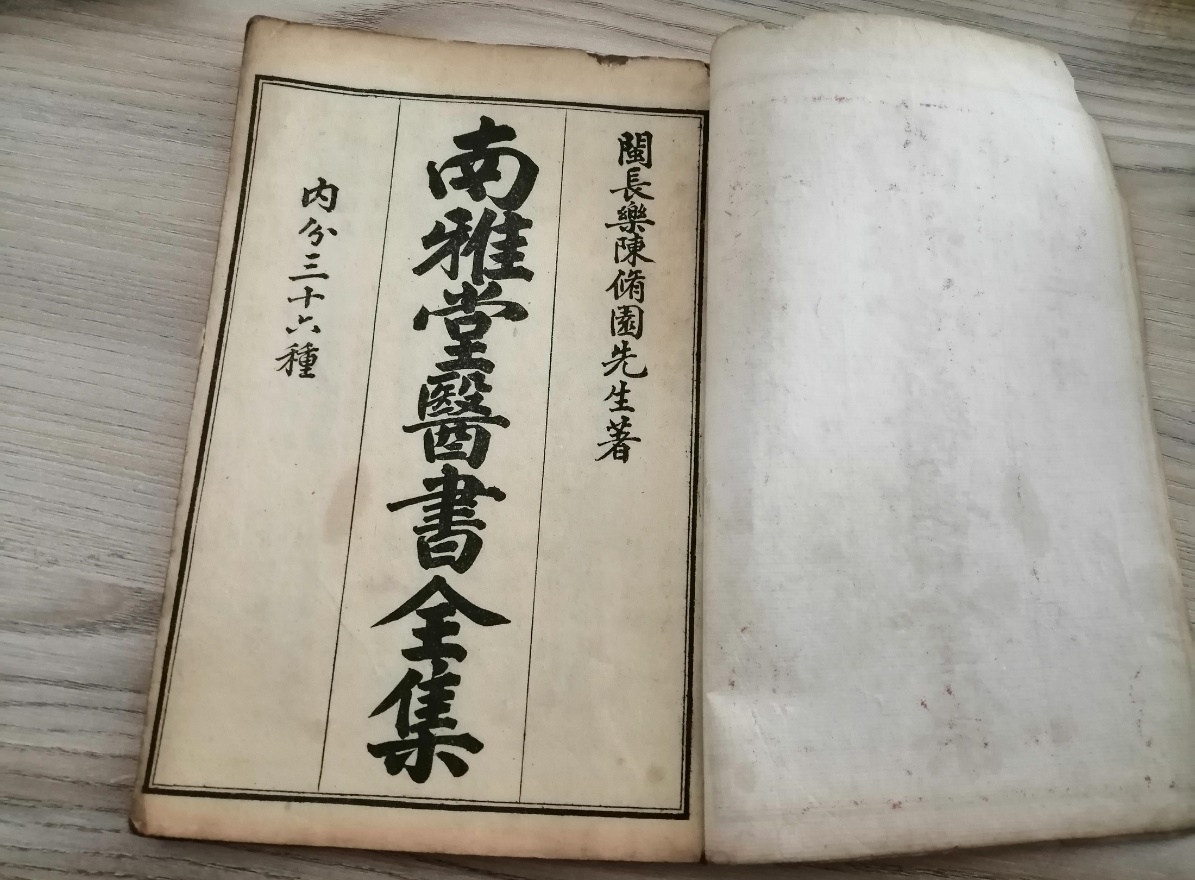 閩長樂陳脩園先生著
南雅堂醫書全集
内分三十六種